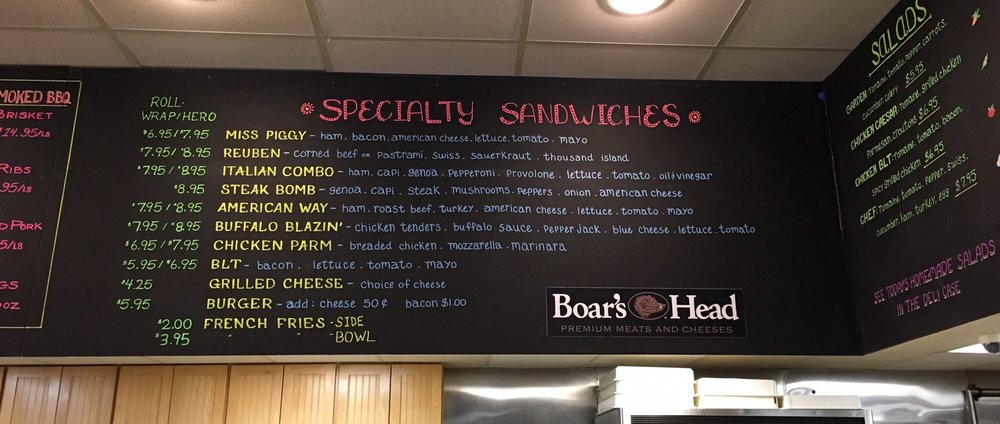 SMOKED BBQ
BRISKET
$24.95/LB
RIBS
.95/LB
PORK
5/LB
OZ
ROLL-
WRAP/HERO
SPECIALTY SANDWICHES
$6.95/$7.95 MISS PIGGY - ham. bacon. american cheese. lettuce. tomato. mayo
$7.95/$8.95 REUBEN - corned beef or Pastrami. Swiss. sauerkraut. thousand island
$7.95/$8.95 ITALIAN COMBO - ham. capi. genoa. Pepperoni. Provolone. lettuce. tomato. oil+vinegar
$8.95 STEAK BOMB - genoa. capi. steak. mushrooms. peppers. onion. american cheese
$7.95/$8.95 AMERICAN WAY - ham. roast beef. turkey. american cheese. lettuce. tomato. mayo
$7.95/$8.95 BUFFALO BLAZIN' - chicken tenders. buffalo sauce. Pepper jack. blue cheese. lettuce. tomato
$6.95/$7.95 CHICKEN PARM - breaded chicken. mozzarella. marinara
$5.95/$6.95 BLT - bacon. lettuce. tomato. mayo
$4.25 GRILLED CHEESE - choice of cheese
$5.95 BURGER - add: cheese 50¢ bacon $1.00
$2.00 FRENCH FRIES - SIDE
$3.95 " " - BOWL
Boar's Head
PREMIUM MEATS AND CHEESES
SALADS
GARDEN: romaine, tomato, pepper, carrots,
cucumber, celery $5.95
CHICKEN CAESAR: romaine, grilled chicken
Parmesan, croutons $6.95
CHICKEN BLT: romaine, tomato, bacon,
spicy grilled chicken $6.95
CHEF: romaine, tomato, pepper, swiss,
cucumber, ham, turkey, egg $7.95
SEE TODAY'S HOMEMADE SALADS
IN THE DELI CASE